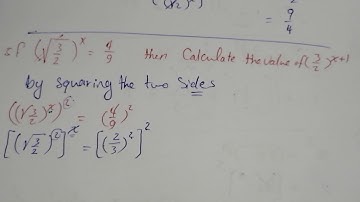 (√2)
= 9/4
if (√3/2)^x = 4/9 then Calculate the value of (3/2)^x+1
by squaring the two sides
((√3/2)^x)^2 = (4/9)^2
[((√3/2)^2)]^x = [(2/3)^2]^2